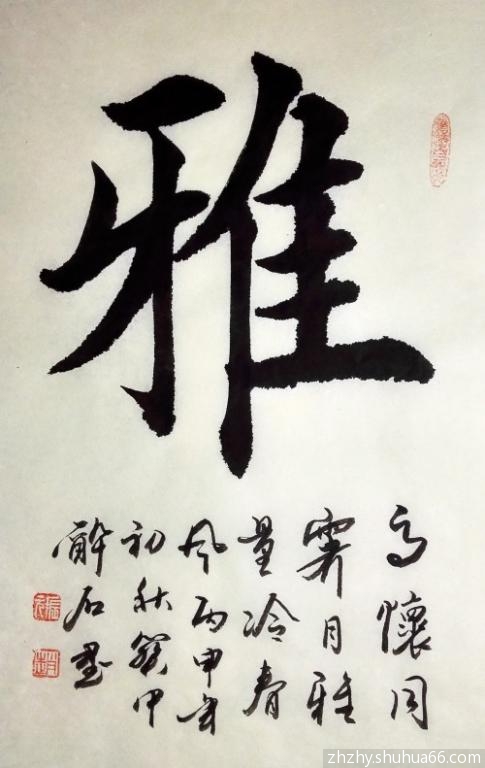 雅
高懷同
霁月雅
量洽春
风丙申年
初秋
石書
zhzhy.shuhua66.com